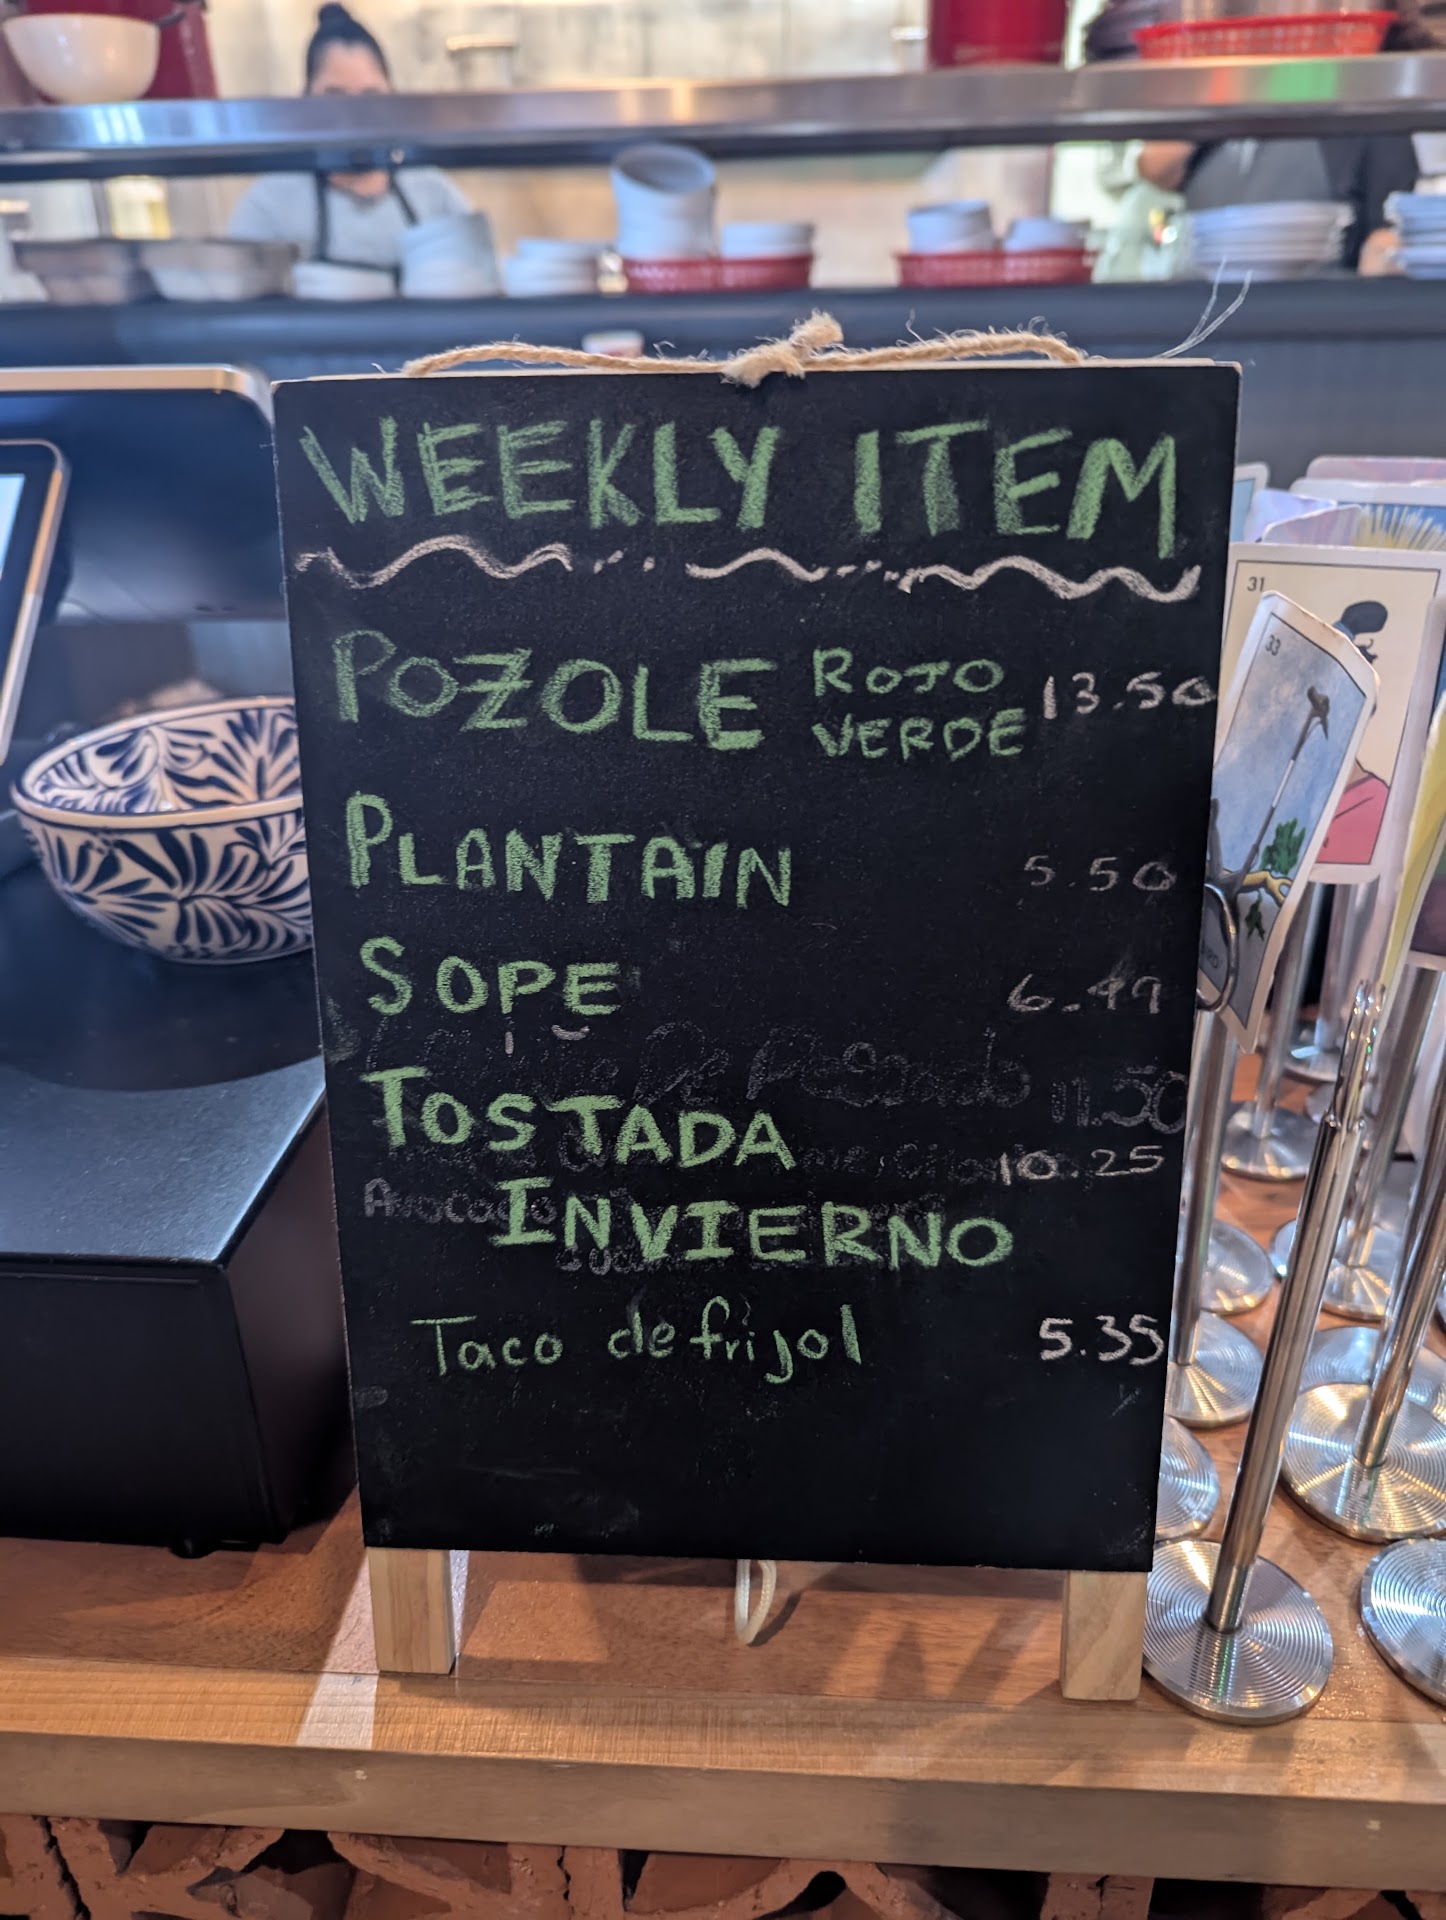 WEEKLY ITEM
POZOLE ROJO VERDE 13.50
PLANTAIN 5.50
SOPE 6.49
De Pescado 11.50
TOSTADA 10.25
Avocado
INVIERNO
Taco de frijol 5.35
31
33